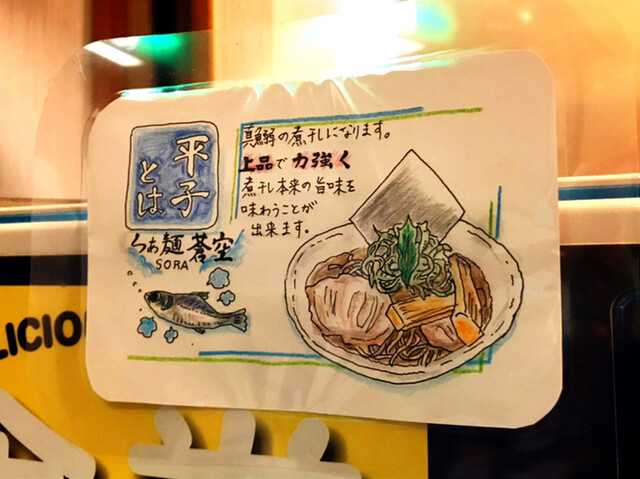 平子
とは、
真鰯の煮干しになります。
上品で力強く
煮干し本来の旨味を
味わうことが
出来ます。
らぁ麺 蒼空
SORA
LICIOU